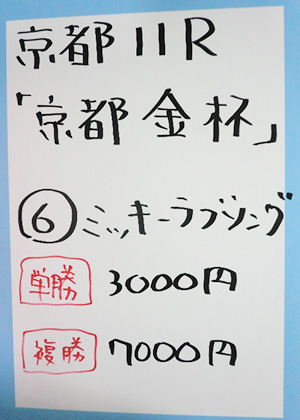 京都11R
「京都金杯」
⑥ミッキーラブソング
単勝 3000円
複勝 7000円